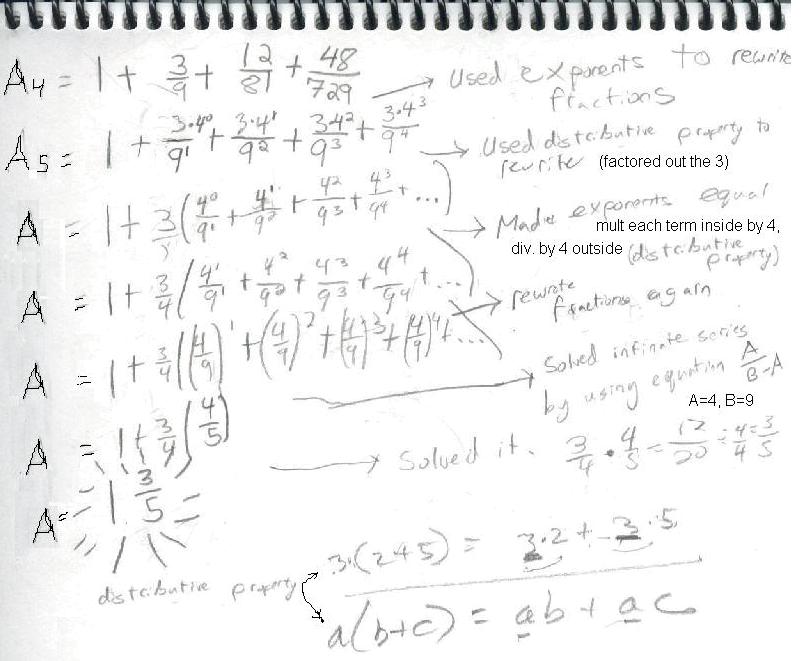 A₄ = 1 + 3/9 + 12/81 + 48/729 → Used exponents to rewrite
fractions
A₅ = 1 + 3·4⁰/9¹ + 3·4¹/9² + 3·4²/9³ + 3·4³/9⁴ → Used distributive property to
rewrite (factored out the 3)
A = 1 + 3/1 (4⁰/9¹ + 4¹/9² + 4²/9³ + 4³/9⁴ + ...) → Made exponents equal
mult each term inside by 4,
div. by 4 outside (distributive
property)
A = 1 + 3/4 (4¹/9¹ + 4²/9² + 4³/9³ + 4⁴/9⁴ + ...) → rewrote
fractions again
A = 1 + 3/4 ((4/9)¹ + (4/9)² + (4/9)³ + (4/9)⁴ + ...) → Solved infinate series
by using equation A/B-A
A=4, B=9
A = 1 + 3/4 (4/5) → Solved it. 3/4 · 4/5 = 12/20 ÷ 4/4 = 3/5
A = 1 3/5
3·(2+5) = 3·2 + 3·5
distributive property
a(b+c) = ab + ac